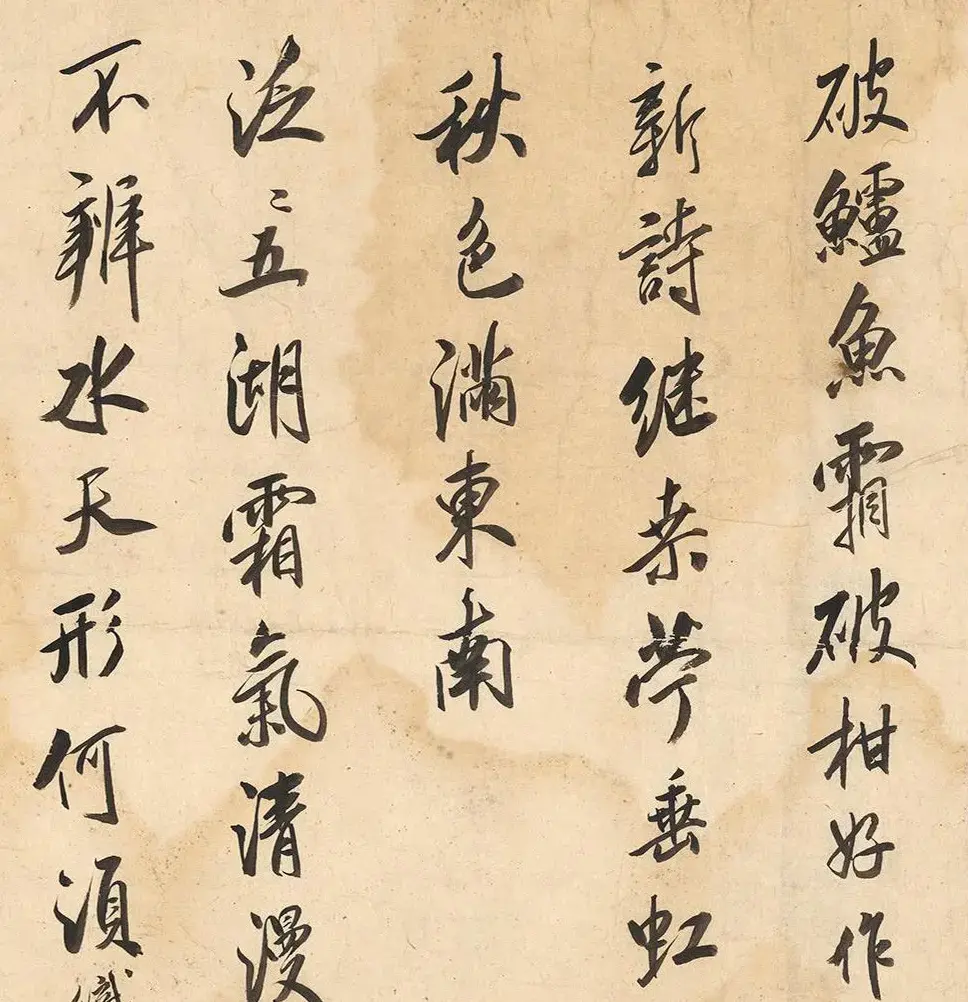 破鱸魚霜破柑好作
新詩継桒苧垂虹
秋色滿東南
泛〻五湖霜氣清漫
不辨水天形何須